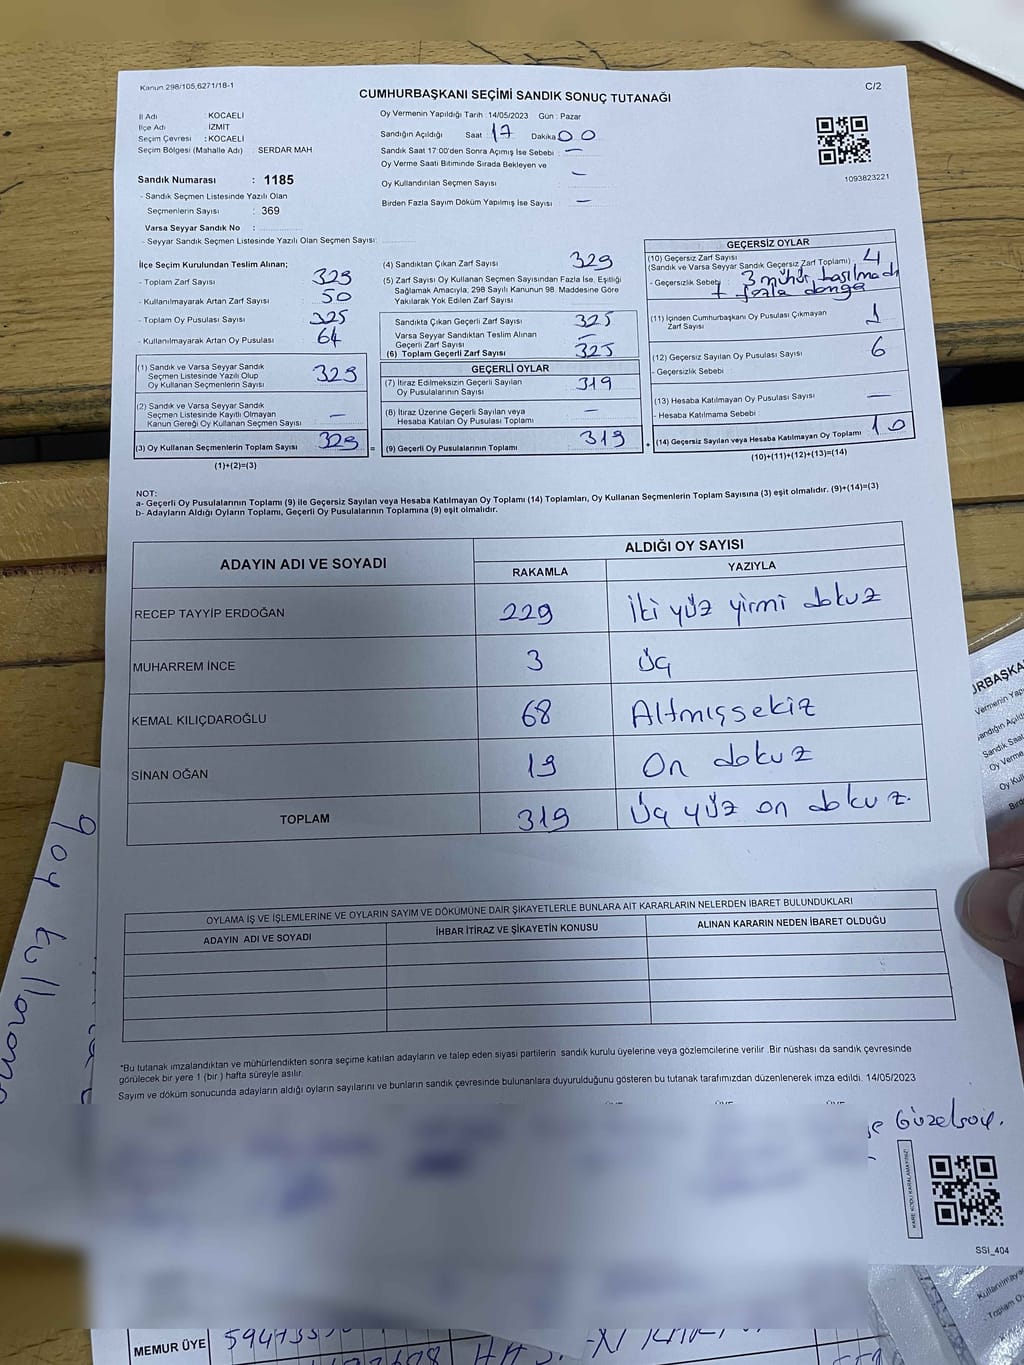 Kanun.298/105,6271/18-1
CUMHURBAŞKANI SEÇİMİ SANDIK SONUÇ TUTANAĞI
C/2
İl Adı : KOCAELİ
İlçe Adı : İZMİT
Seçim Çevresi : KOCAELİ
Seçim Bölgesi (Mahalle Adı) : SERDAR MAH
Sandık Numarası : 1185
- Sandık Seçmen Listesinde Yazılı Olan
Seçmenlerin Sayısı : 369
Varsa Seyyar Sandık No :
- Seyyar Sandık Seçmen Listesinde Yazılı Olan Seçmen Sayısı:
Oy Vermenin Yapıldığı Tarih : 14/05/2023 Gün : Pazar
Sandığın Açıldığı Saat : 17 Dakika : 00
Sandık Saat 17:00'den Sonra Açımış İse Sebebi : —
Oy Verme Saati Bitiminde Sırada Bekleyen ve
Oy Kullandırılan Seçmen Sayısı —
Birden Fazla Sayım Döküm Yapılmış İse Sayısı : —
1093823221
İlçe Seçim Kurulundan Teslim Alınan;
- Toplam Zarf Sayısı : 329
- Kullanılmayarak Artan Zarf Sayısı : 50
- Toplam Oy Pusulası Sayısı : 325
- Kullanılmayarak Artan Oy Pusulası : 64
(1) Sandık ve Varsa Seyyar Sandık
Seçmen Listesinde Yazılı Olup
Oy Kullanan Seçmenlerin Sayısı : 329
(2) Sandık ve Varsa Seyyar Sandık
Seçmen Listesinde Kayıtlı Olmayan
Kanun Gereği Oy Kullanan Seçmen Sayısı : —
(3) Oy Kullanan Seçmenlerin Toplam Sayısı : 329
(1)+(2)=(3)
(4) Sandıktan Çıkan Zarf Sayısı : 329
(5) Zarf Sayısı Oy Kullanan Seçmen Sayısından Fazla İse, Eşitliği
Sağlamak Amacıyla, 298 Sayılı Kanunun 98. Maddesine Göre
Yakılarak Yok Edilen Zarf Sayısı :
Sandıkta Çıkan Geçerli Zarf Sayısı : 325
Varsa Seyyar Sandıktan Teslim Alınan
Geçerli Zarf Sayısı : —
(6) Toplam Geçerli Zarf Sayısı : 325
GEÇERLİ OYLAR
(7) İtiraz Edilmeksizin Geçerli Sayılan
Oy Pusulalarının Sayısı : 319
(8) İtiraz Üzerine Geçerli Sayılan veya
Hesaba Katılan Oy Pusulası Toplamı : —
= (9) Geçerli Oy Pusulalarının Toplamı : 319
GEÇERSİZ OYLAR
(10) Geçersiz Zarf Sayısı
(Sandık ve Varsa Seyyar Sandık Geçersiz Zarf Toplamı) : 4
- Geçersizlik Sebebi : 3 mühür basılmadı
1 fazla damga
(11) İçinden Cumhurbaşkanı Oy Pusulası Çıkmayan
Zarf Sayısı : 1
(12) Geçersiz Sayılan Oy Pusulası Sayısı : 6
- Geçersizlik Sebebi :
(13) Hesaba Katılmayan Oy Pusulası Sayısı : —
- Hesaba Katılmama Sebebi :
+ (14) Geçersiz Sayılan veya Hesaba Katılmayan Oy Toplamı : 10
(10)+(11)+(12)+(13)=(14)
NOT:
a- Geçerli Oy Pusulalarının Toplamı (9) ile Geçersiz Sayılan veya Hesaba Katılmayan Oy Toplamı (14) Toplamları, Oy Kullanan Seçmenlerin Toplam Sayısına (3) eşit olmalıdır. (9)+(14)=(3)
b- Adayların Aldığı Oyların Toplamı, Geçerli Oy Pusulalarının Toplamına (9) eşit olmalıdır.
ADAYIN ADI VE SOYADI
ALDIĞI OY SAYISI
RAKAMLA YAZIYLA
RECEP TAYYİP ERDOĞAN 229 İki yüz yirmi dokuz
MUHARREM İNCE 3 Üç
KEMAL KILIÇDAROĞLU 68 Altmışsekiz
SİNAN OĞAN 19 On dokuz
TOPLAM 319 Üç yüz on dokuz.
OYLAMA İŞ VE İŞLEMLERİNE VE OYLARIN SAYIM VE DÖKÜMÜNE DAİR ŞİKAYETLERLE BUNLARA AİT KARARLARIN NELERDEN İBARET BULUNDUKLARI
ADAYIN ADI VE SOYADI İHBAR İTİRAZ VE ŞİKAYETİN KONUSU ALINAN KARARIN NEDEN İBARET OLDUĞU
*Bu tutanak imzalandıktan ve mühürlendikten sonra seçime katılan adayların ve talep eden siyasi partilerin sandık kurulu üyelerine veya gözlemcilerine verilir .Bir nüshası da sandık çevresinde
görülecek bir yere 1 (bir ) hafta süreyle asılır.
Sayım ve döküm sonucunda adayların aldığı oyların sayılarını ve bunların sandık çevresinde bulunanlara duyurulduğunu gösteren bu tutanak tarafımızdan düzenlenerek imza edildi. 14/05/2023
Güzelsoy.
KARE KODU KARALAMAYINIZ!
SSİ_404
MEMUR ÜYE